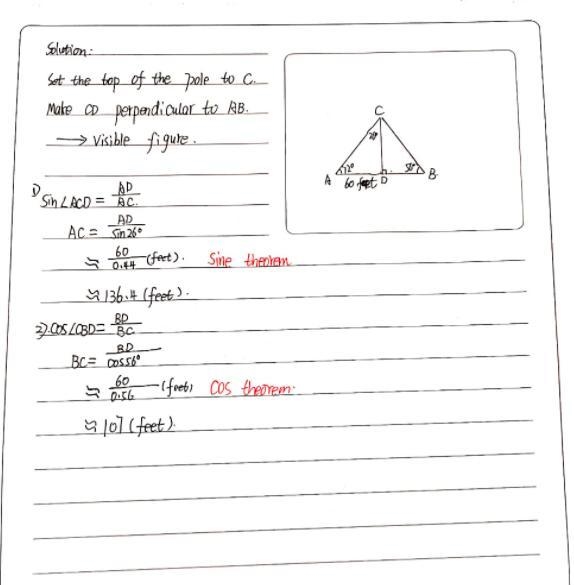 Solution:
Set the top of the pole to C.
Make CD perpendicular to AB.
→ visible figure.
C
A
D
B.
60 feet
1) Sin∠ACD = AD/AC.
AC = AD/Sin26°
≈ 60/0.44 (feet). Sine theorem
≈ 136.4 (feet).
2) COS∠CBD = BD/BC
BC = BD/COS56°
≈ 60/0.56 (feet) COS theorem.
≈ 107 (feet).